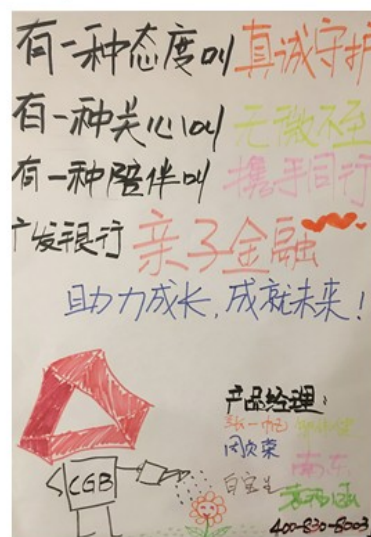 有一种态度叫真诚守护
有一种关心叫无微不至
有一种陪伴叫携手同行
广发银行 亲子金融
助力成长,成就未来!
产品经理:
南东
CGB
400-830-8003